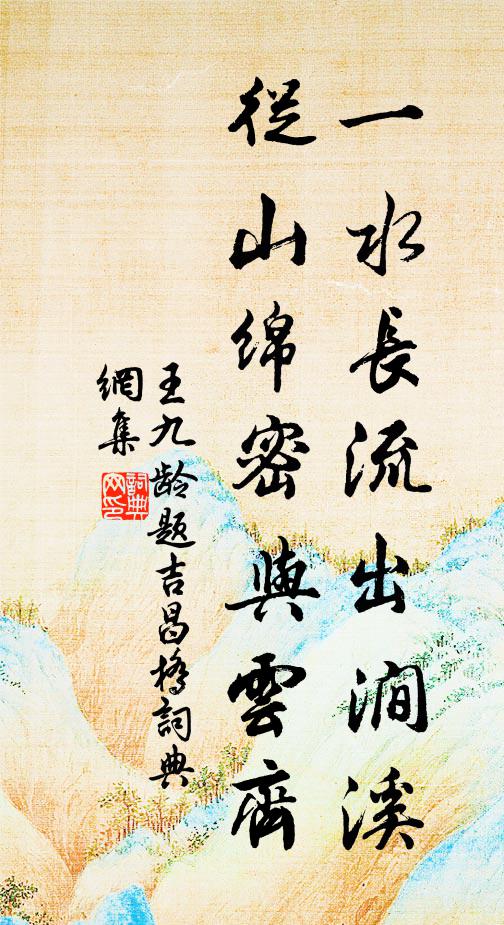 一水長流出澗溪
從山綿密與雲齊
王九齡題吉昌橋詞典
網集
詞典網印